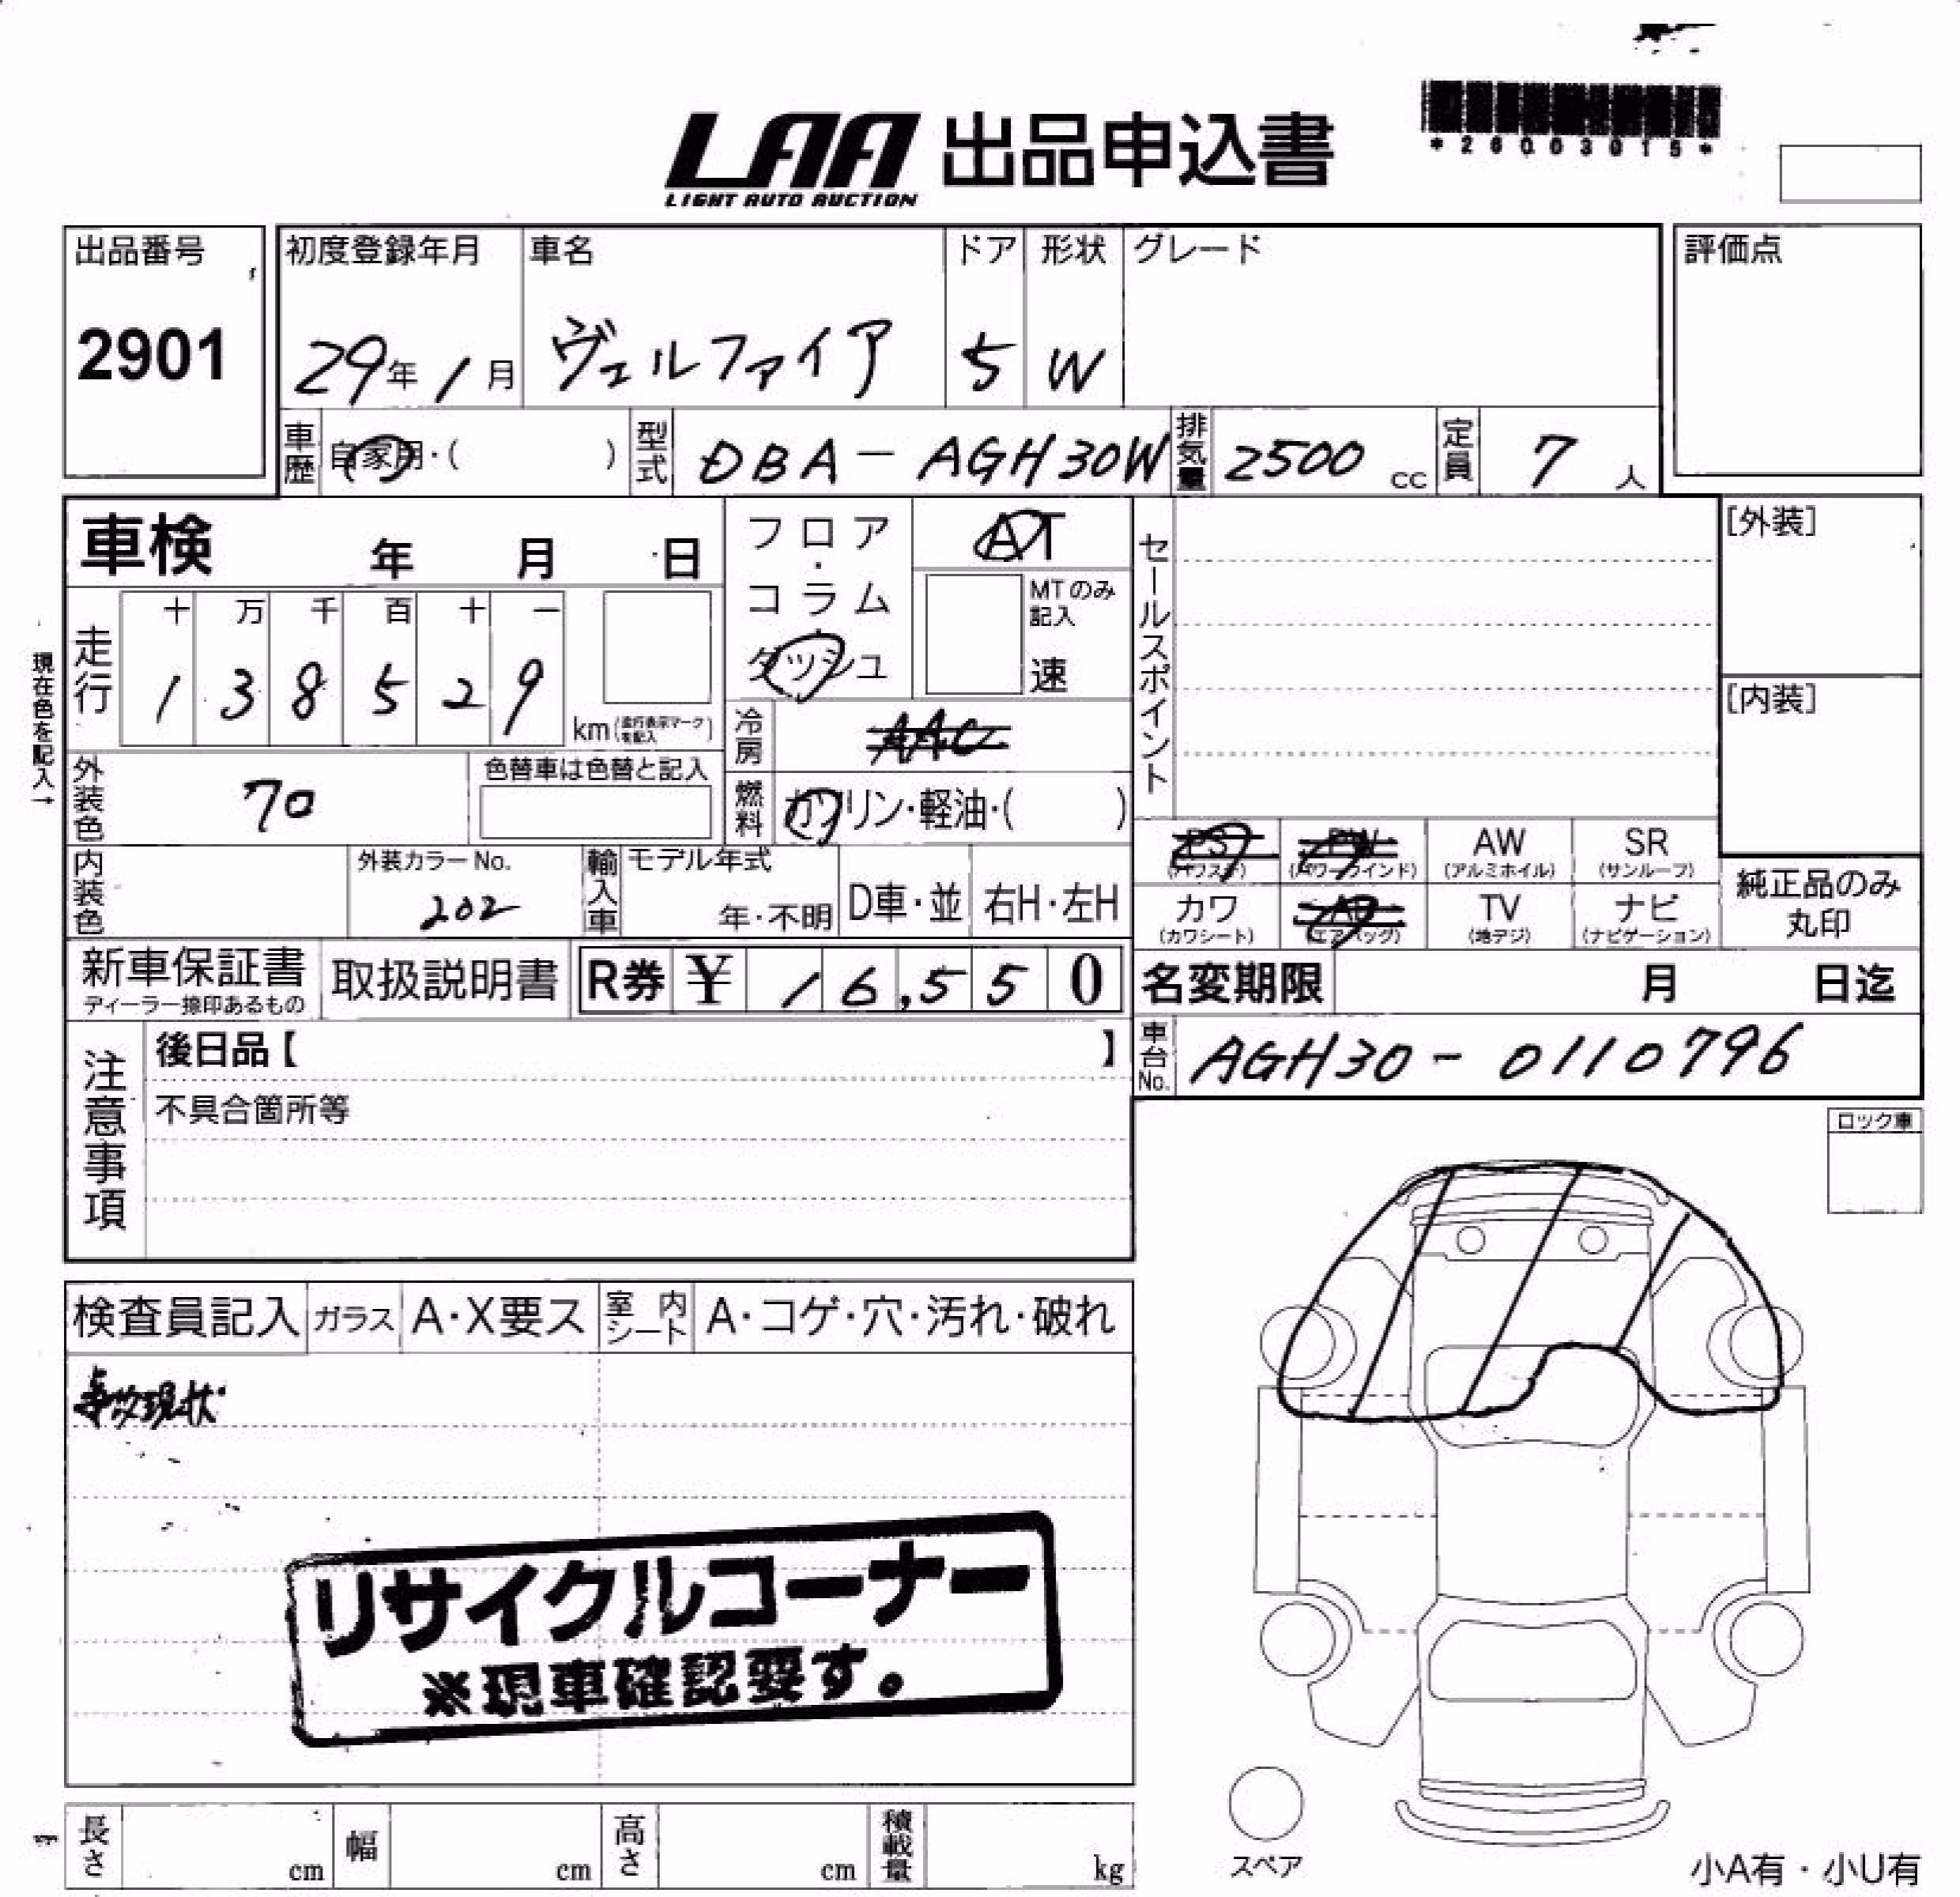 LAA 出品申込書
LIGHT AUTO AUCTION
*26003015*
出品番号
2901
初度登録年月
29年 1月
車名
ヴェルファイア
ドア
5
形状
W
グレード
評価点
車歴
自家用・( )
型式
DBA-AGH30W
排気量
2500 cc
定員
7 人
車検 年 月 日
フロア・コラム・ダッシュ
AT
MTのみ記入
速
セールスポイント
[外装]
[内装]
現在色を記入→
走行
十 万 千 百 十 一
1 3 8 5 2 9
km(走行表示マークを記入)
冷房
AAC
外装色
70
色替車は色替と記入
燃料
ガソリン・軽油・( )
PS
(パワステ)
PW
(パワーウインド)
AW
(アルミホイル)
SR
(サンルーフ)
カワ
(カワシート)
AB
(エアバッグ)
TV
(地デジ)
ナビ
(ナビゲーション)
純正品のみ
丸印
内装色
外装カラーNo.
202
輸入車
モデル年式
年・不明
D車・並
右H・左H
新車保証書
ディーラー捺印あるもの
取扱説明書
R券 ¥ 16,550
名変期限 月 日迄
注意事項
後日品【 】
不具合箇所等
車台No.
AGH30-0110796
ロック車
検査員記入
ガラス
A・X要ス
室内シート
A・コゲ・穴・汚れ・破れ
事故現状
リサイクルコーナー
※現車確認要す。
長さ cm
幅 cm
高さ cm
積載量 kg
スペア
小A有・小U有